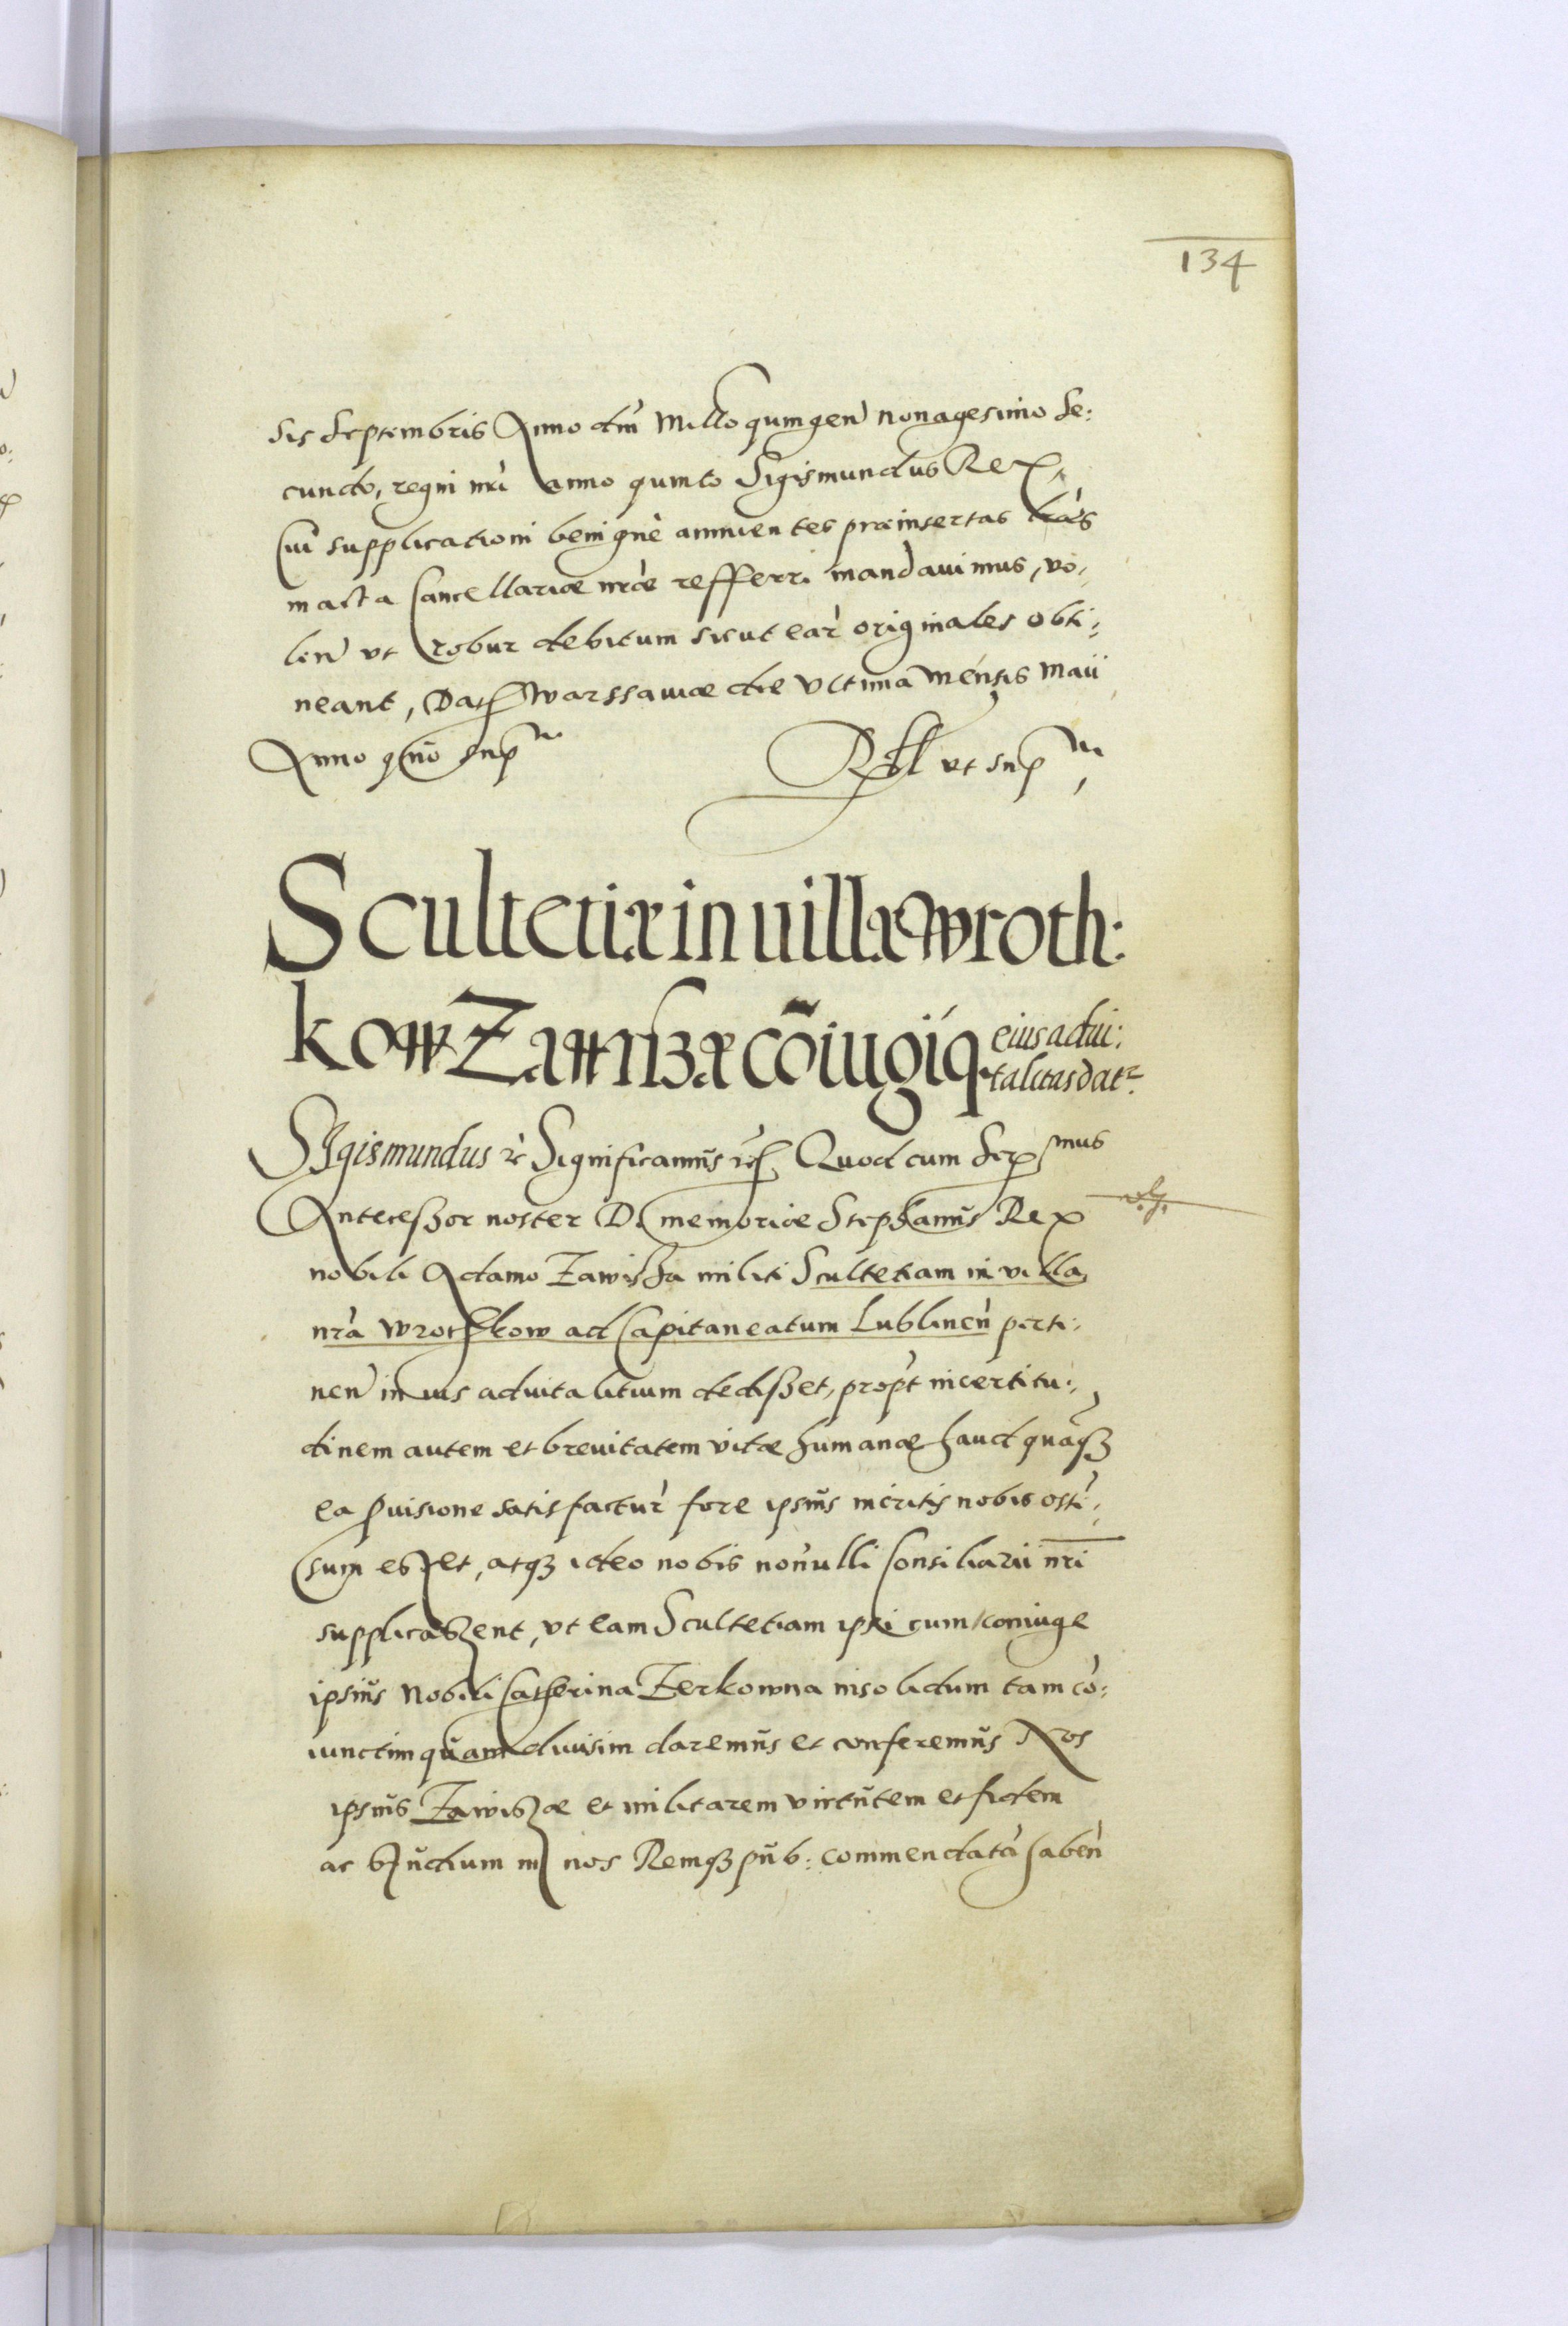 134
sis Septembris Anno dni Millo quingen nonagesimo se:
cundo, regni nri anno quinto Sigismundus Rex,
Cui supplicationi benignè annuentes præinsertas lràs
in acta Cancellariæ nræ refferri mandauimus, vo,
len vt robur debitum sicut ear originales obti:
neant, Dat Warssauiæ die vltima mensis Maii
Anno quo sup
Rel vt sup
Scultetiæ in uilla Wroth:
kow Zawiszæ cõiugiq eius adui:
talitas dat
SIgismundus rc Significamus rc Quod cum Ser mus
Anteceszor noster D. memoriæ Stephanus Rex
nobili Adamo Zawisza militi Scultetiam in villa
nrà Wrothkow ad Capitaneatum Lublinen perti:
nen in ius aduitalitium dediszet, propt incertitu:,
dinem autem et breuitatem vitæ humanæ haud quaqz
ea puisione satisfactur fore ipsius meritis nobis oste,
sum eszet, atqz ideo nobis nonulli Consiliarii nri
supplicaszent, vt eam Scultetiam ipsi cum coniuge
ipsius Nobili Catherina Zerkowna insolidum tam cò:
iunctim quam diuisim daremus et conferemus Nos
ipsius Zawiszæ et militarem virtutem et fidem
ac studium in nos Remqz pub: commendatà haben